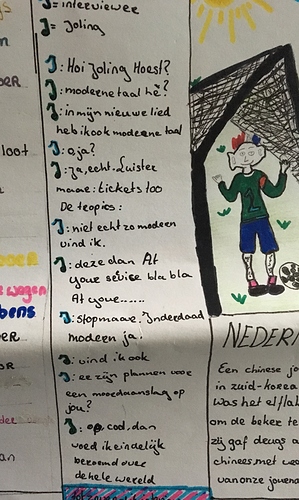 J= interviewer
J= Joling
J: Hoi Joling Hoest?
J: moderne taal hè?
J: in mijn nieuwe lied
heb ik ook moderne taal
J: o ja?
J: ja, echt. Luister
maar: tickets too
De tropics:
J: niet echt zo modern
vind ik.
J: deze dan At
your sevise bla bla
At your......
J: stop maar. Inderdaad
modern ja.
J: vind ik ook
J: er zijn plannen voor
een moordaanslag op
jou?
J: op, cool, dan
word ik eindelijk
beroemd over
de hele wereld
loot
wagen
bens
2
NEDER
Een chinese jo
in zuid-korea
Was het elfla
om de beker te
zij gaf drugs a
chinees met wee
van onze jouwe